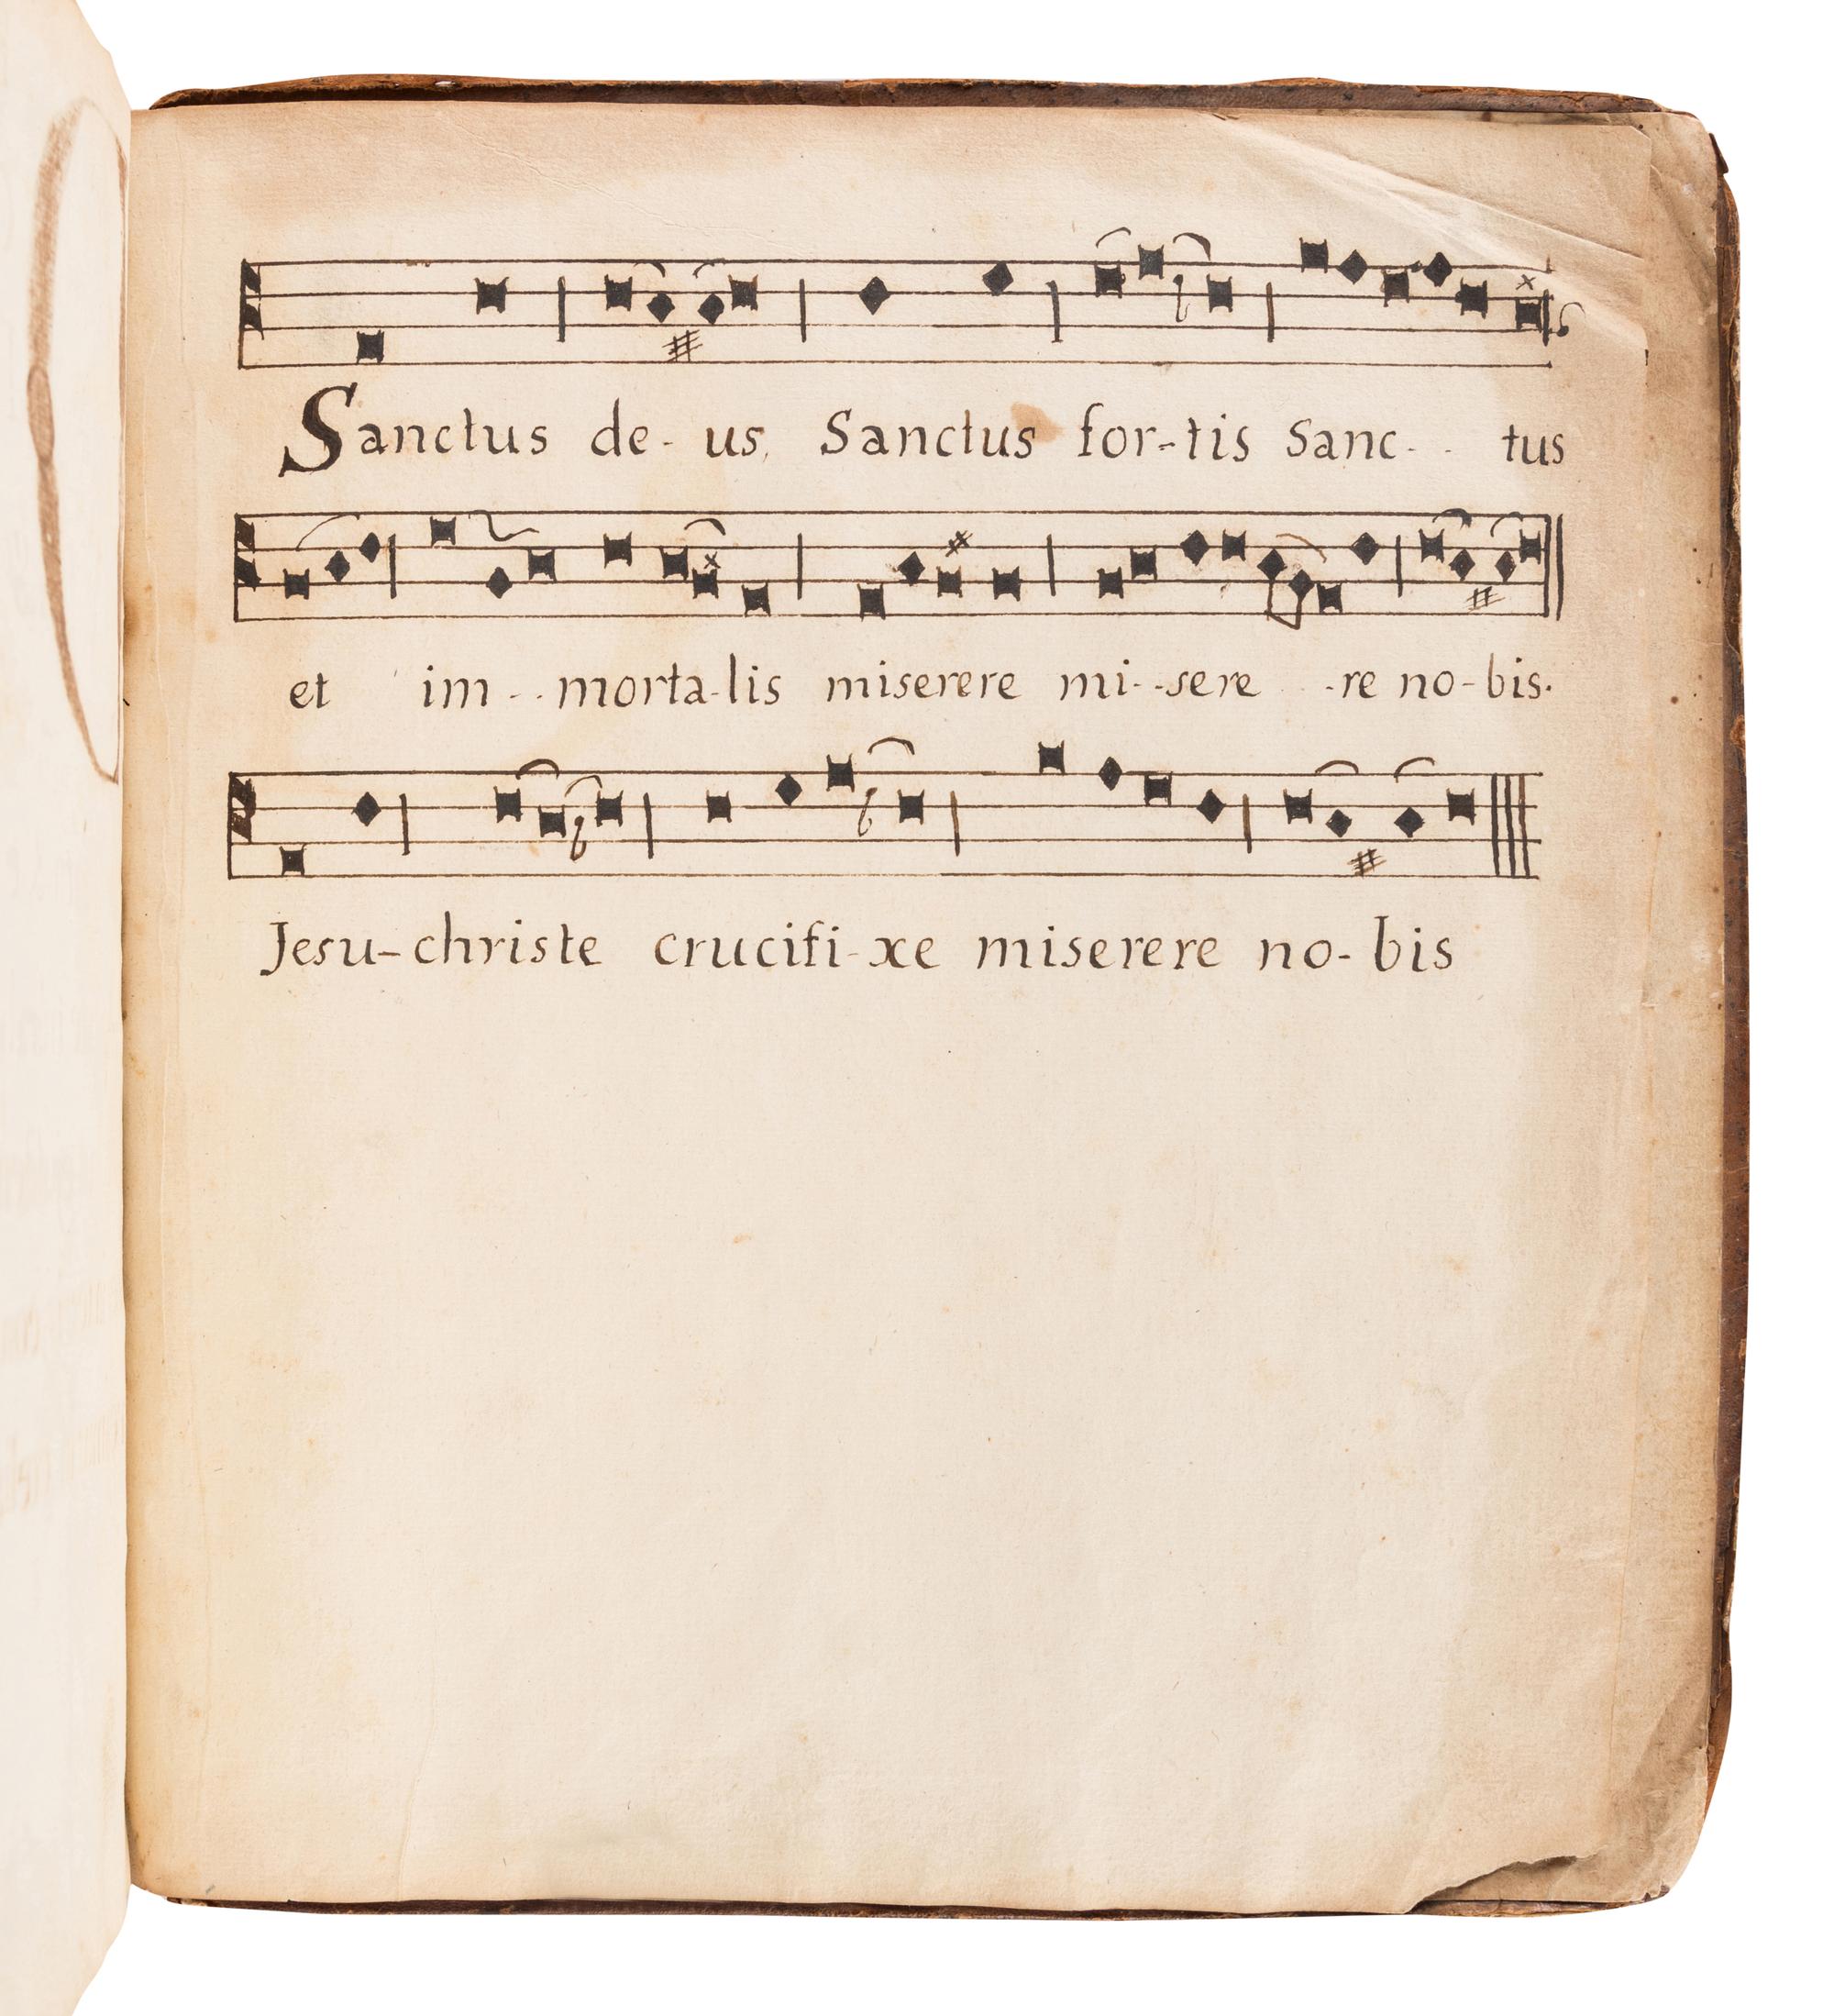 Sanctus de- us, Sanctus for-tis Sanc- - tus
et im - - morta-lis miserere mi--sere - -re no-bis.
Jesu-christe crucifi-xe miserere no-bis